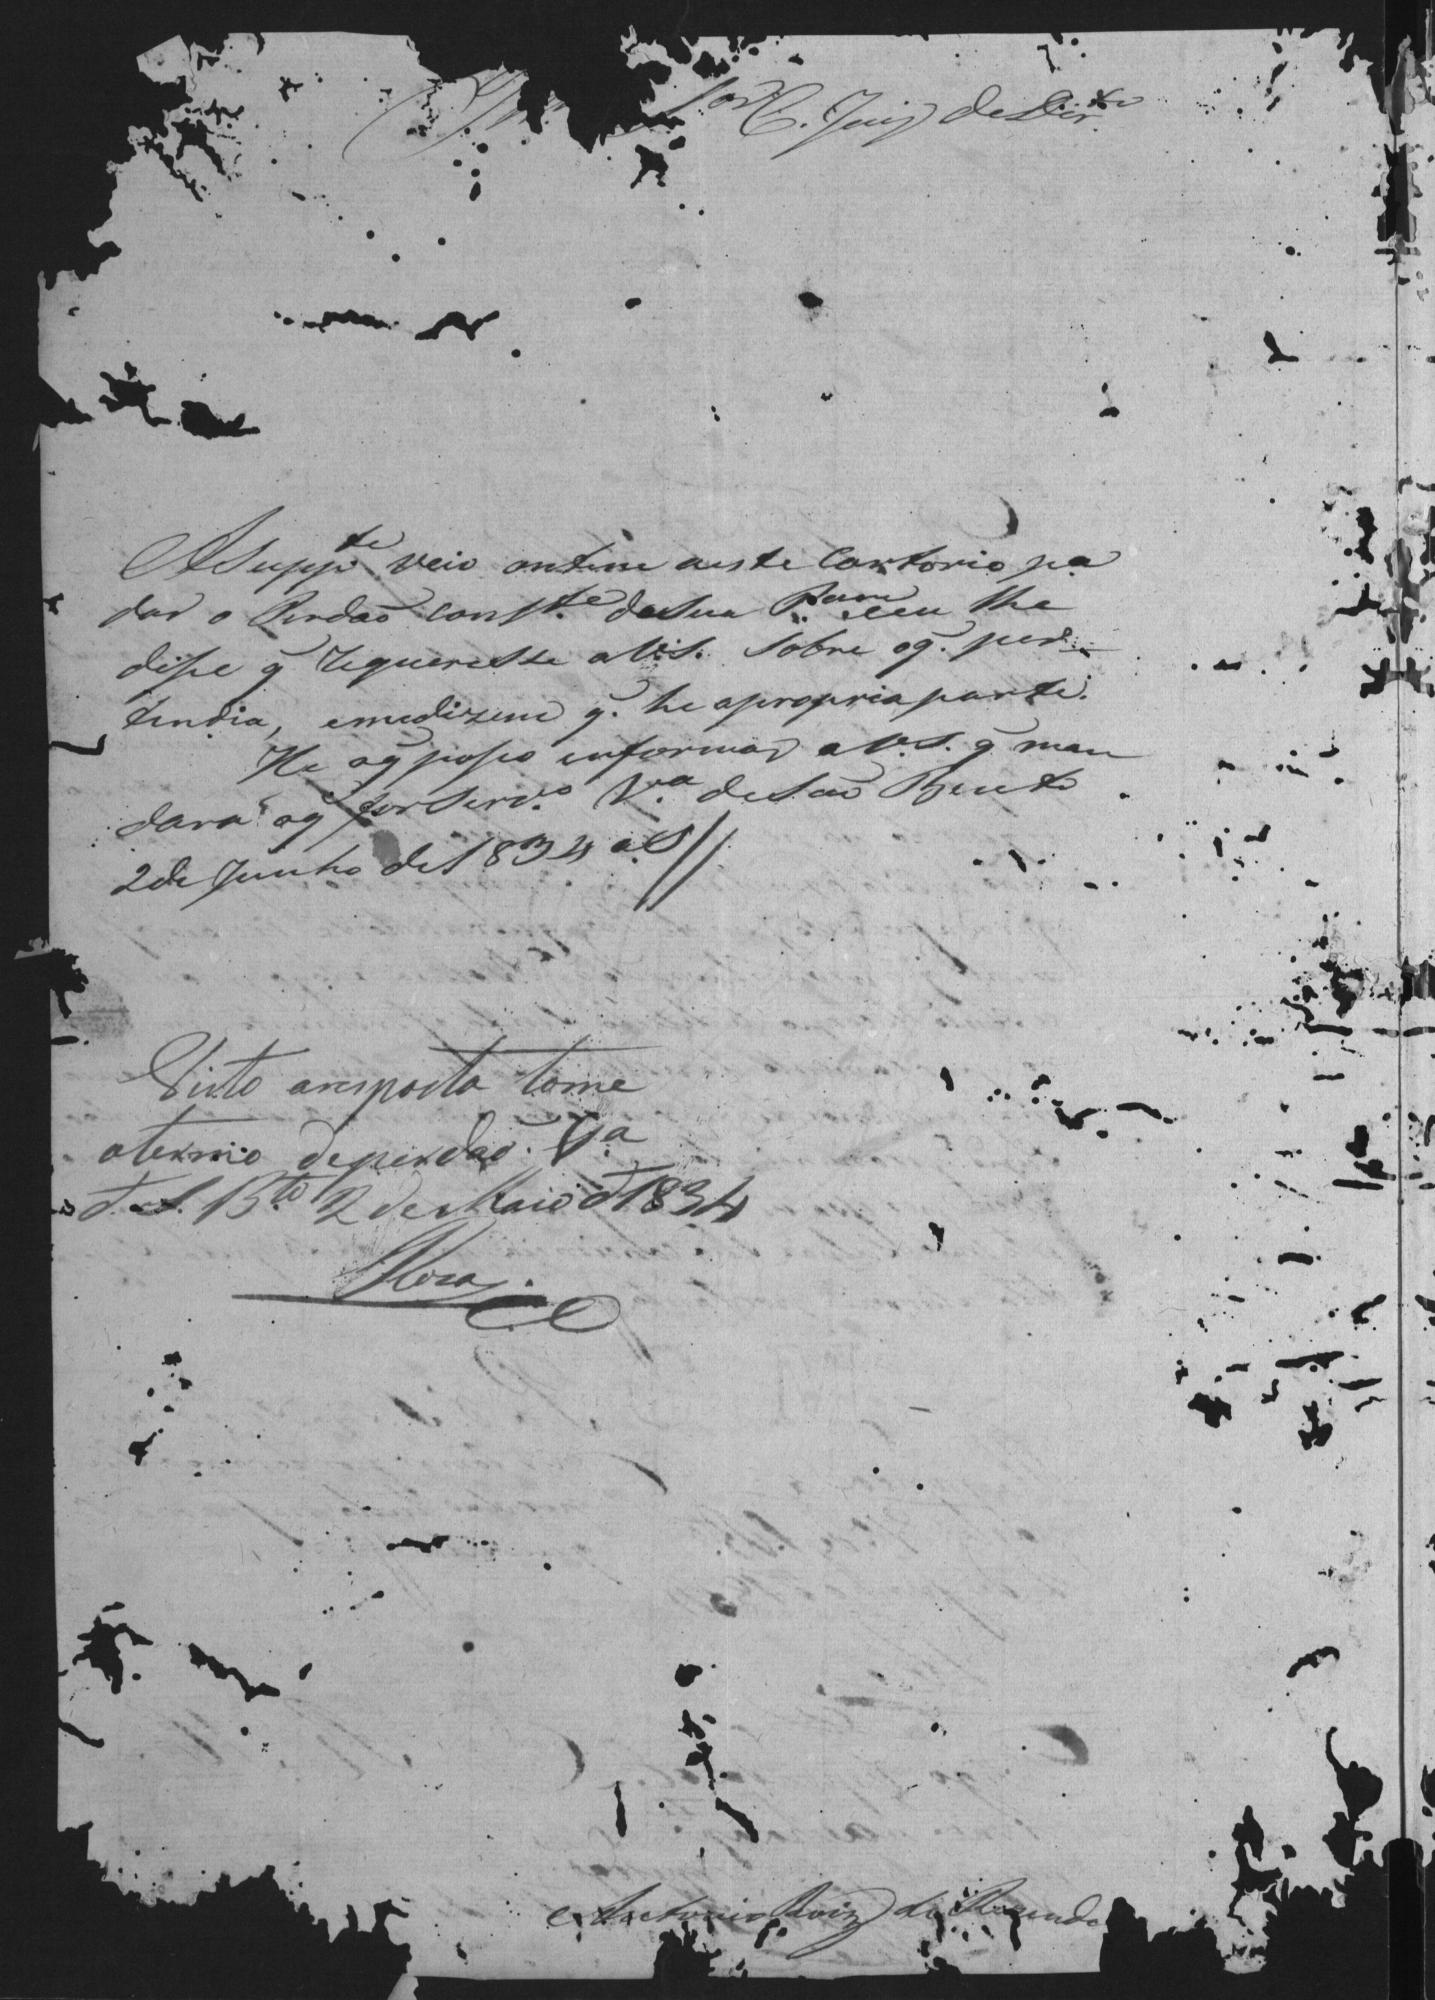 Juiz de Dir.to
A Supp.te veio ontem a este Cartorio pa
dar o Perdaõ const.e da sua eeu lhe
dise q̃ requeresse a V.S. sobre oq̃. per-
tendia, emedizem q̃. he apropria parte.
He oq̃ poso informar a V.S. q̃ man
dará oq̃ for Serv.o V.a de Saõ Bento
2 de Junho de 1834 a S//
Visto aresposta tome
otermo deperdaõ. V.a
d. S. B.to 2 de Maio d 1834
Roza
Antonio Roiz de Rezende